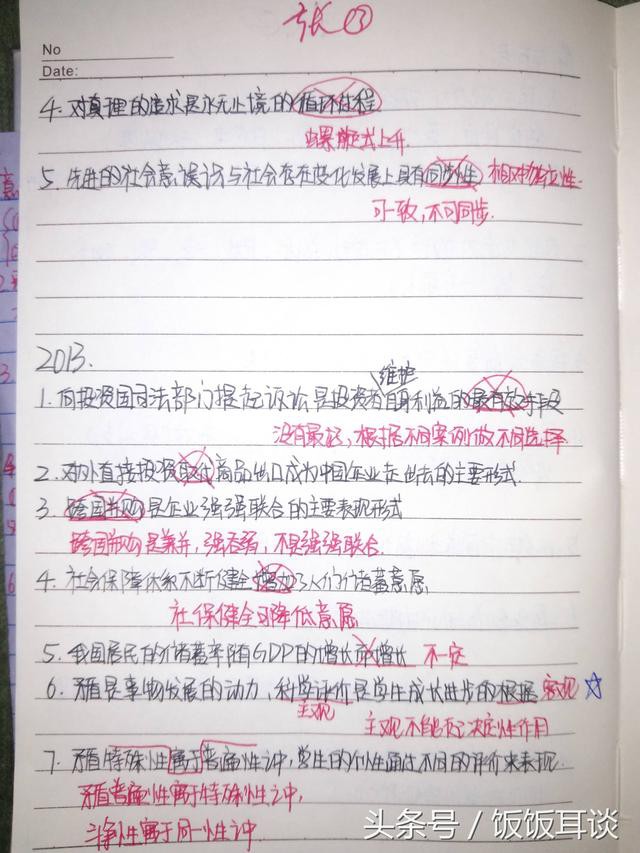 张③
No
Date:
4. 对真理的追求是永无止境的循环过程.
螺旋式上升.
5. 先进的社会意识与社会存在变化发展上具有同步性 相对独立性.
可一致,不可同步.
2013.
维护
1. 向投资国司法部门提起诉讼是投资者自身利益的最有效手段
没有最好,根据不同案例做不同选择
2. 对外直接投资取代商品出口成为中国企业走出去的主要形式.
3. 跨国并购是企业强强联合的主要表现形式
跨国并购是兼并,强吞弱,不是强强联合.
4. 社会保障体系不断健全增加了人们储蓄意愿
社保健全可降低意愿
5. 我国居民的储蓄率随GDP的增长而增长 不一定
6. 矛盾是事物发展的动力,科学评价是学生成长进步的根据 客观
主观
主观不能起决定性作用
7. 矛盾特殊性寓于普遍性之中,学生的个性通过不同的评价来表现.
矛盾普遍性寓于特殊性之中,
斗争性寓于同一性之中.
头条号 / 饭饭耳谈